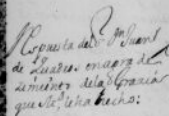 Respuesta del Sr. Dn Juan
de Quadros en agra de
zimiento de la gracia
que se le ha hecho: